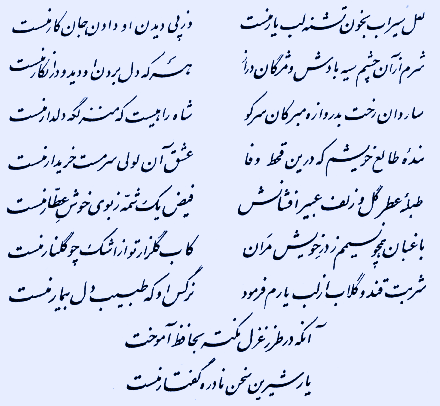 لعل سیراب بخون تشنه لب یار منست
وز پی دیدن او دادن جان کار منست
شرم از آن چشم سیه بادش و مژگان دراز
هر که دل بردن او دید و در انکار منست
ساروان رخت بدروازه مبر کان سر کو
شاه راهیست که منزلگه دلدار منست
بندهٔ طالع خویشم که درین قحط وفا
عشق آن لولی سرمست خریدار منست
طبلهٔ عطر گل و زلف عبیر افشانش
فیض یک شمه ز بوی خوش عطار منست
باغبان همچو نسیمم ز در خویش مران
کاب گلزار تو از اشک چو گلنار منست
شربت قند و گلاب از لب یارم فرمود
نرگس او که طبیب دل بیمار منست
آنکه در طرز غزل نکته بحافظ آموخت
یار شیرین سخن نادره گفتار منست